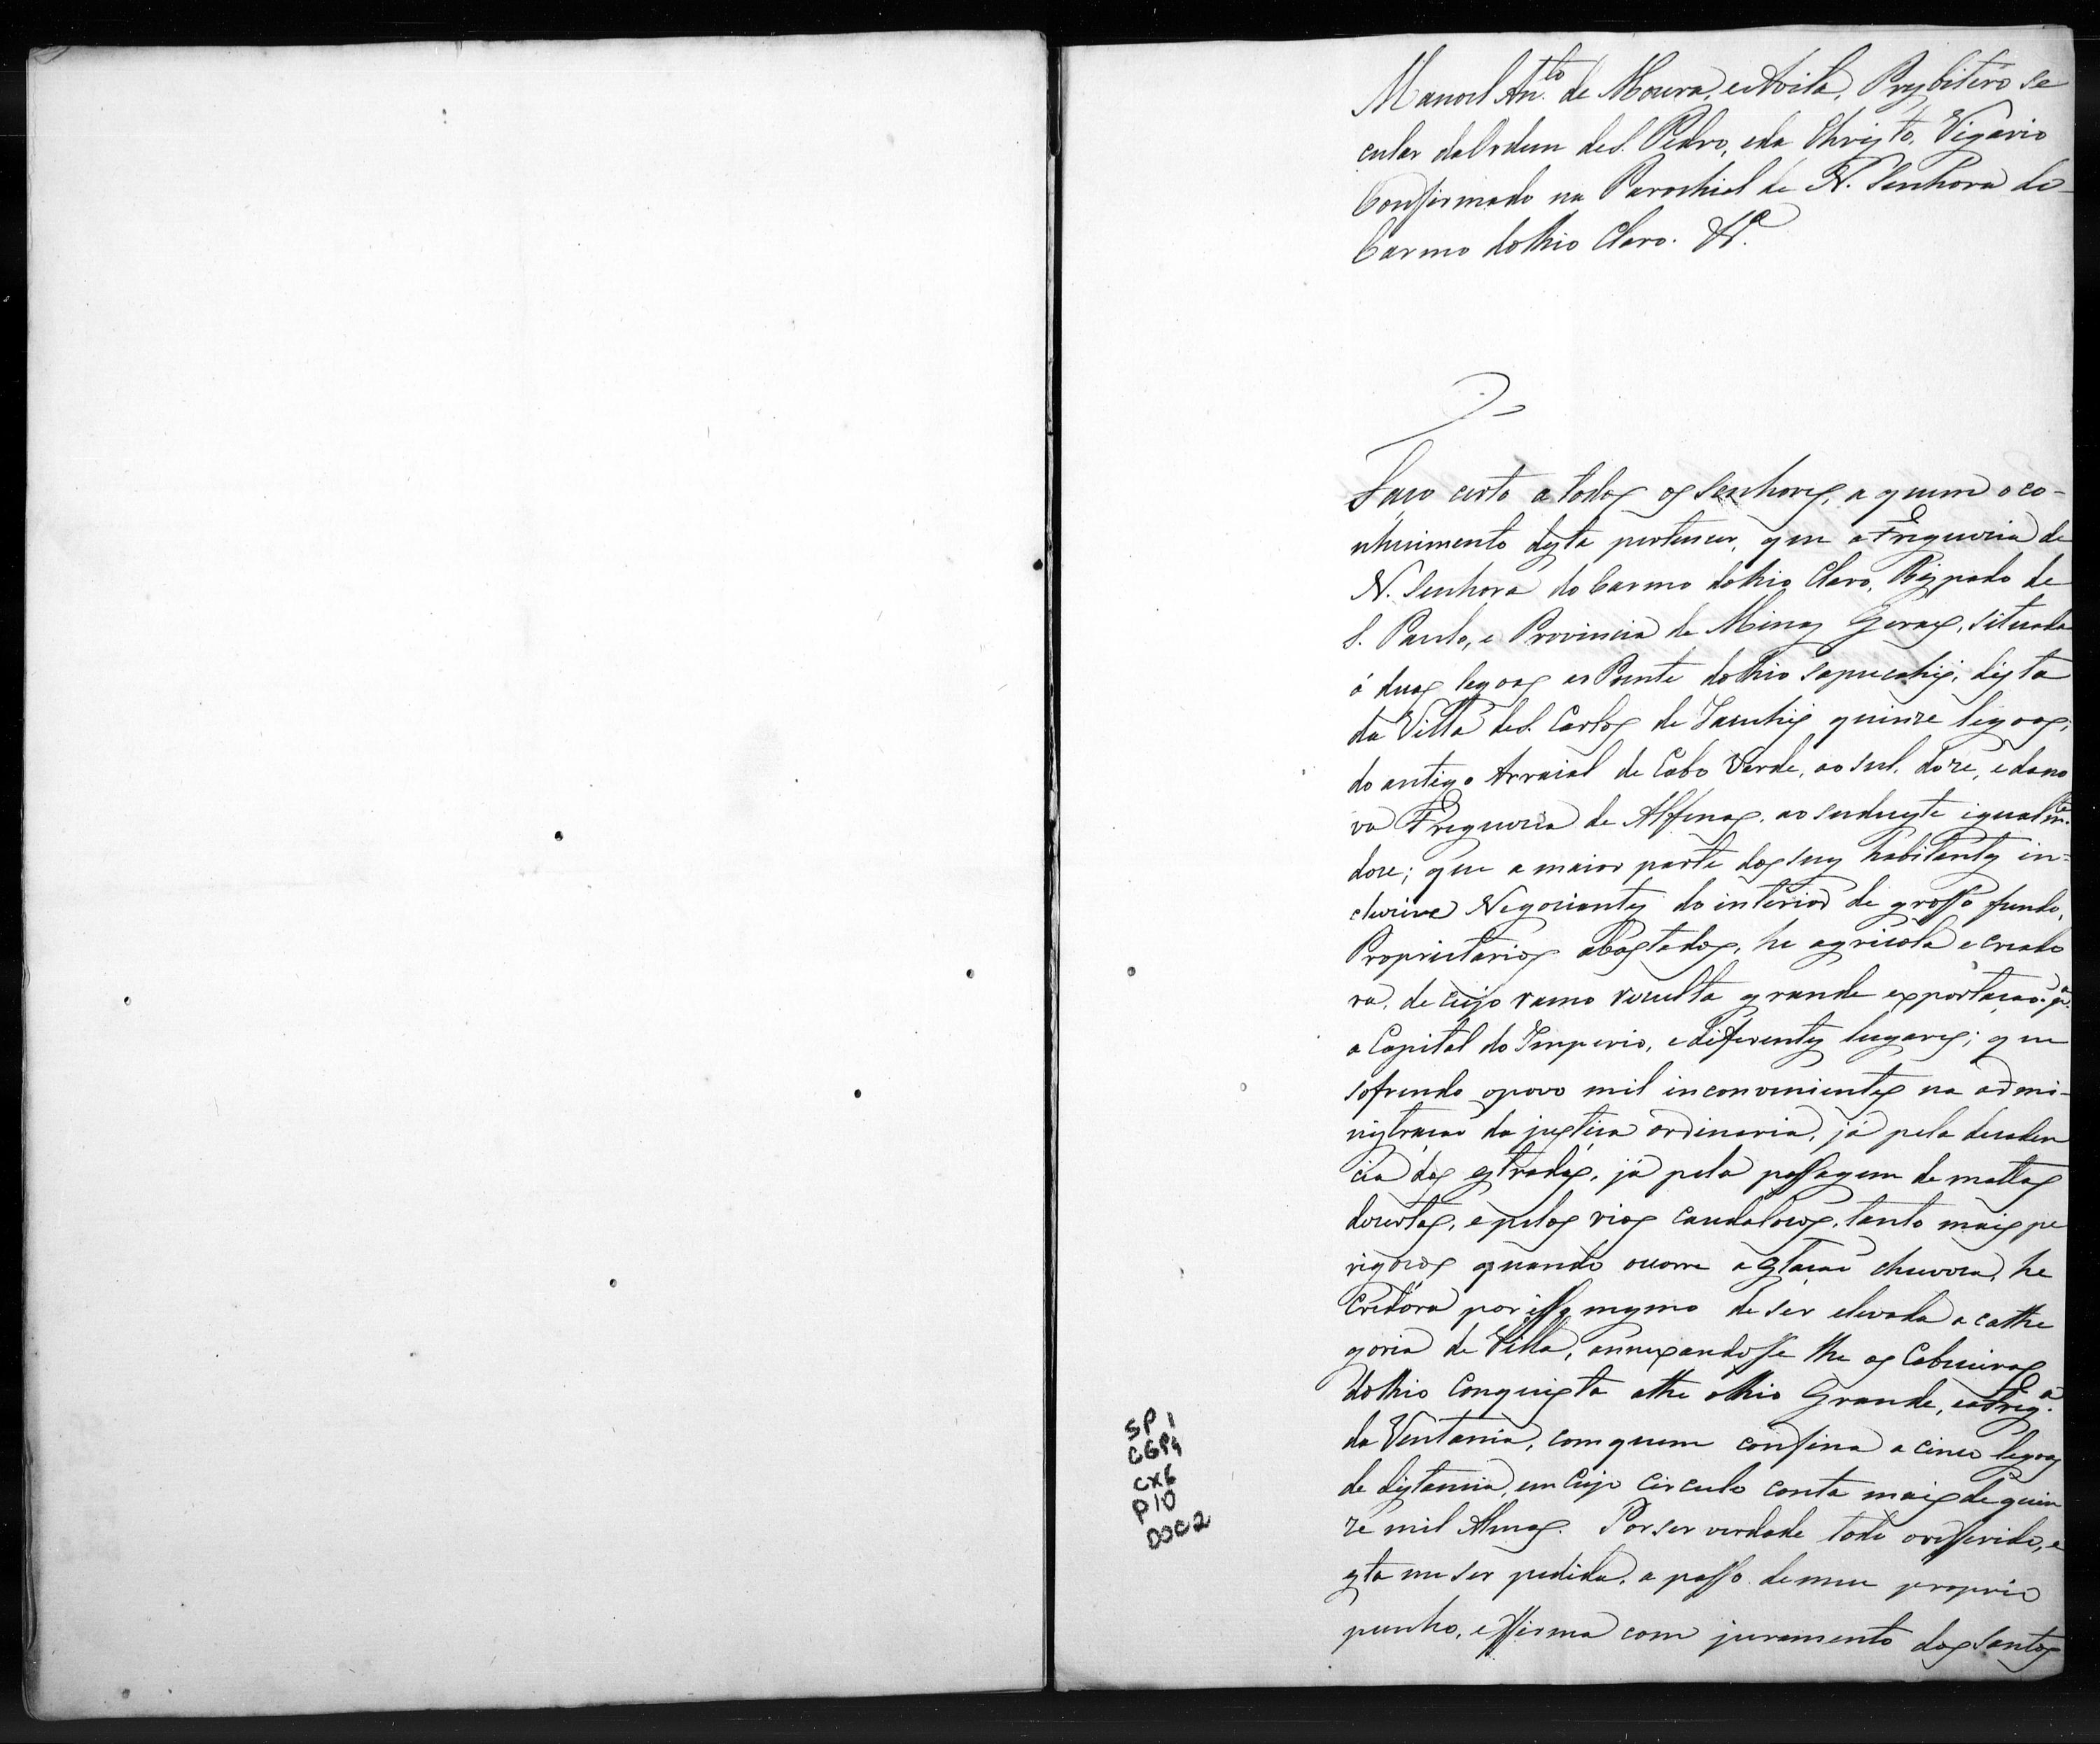 Manoel An.to de Moura, e Avila, Presbitero Se
cular da Ordem de S. Pedro, e da Christo, Vigario
Confirmado na Parochial de N. Senhora do
Carmo do Rio Claro. &.ª
Faço certo a todos os Senhores, a quem o co-
nhecimento desta pertencer, que a Freguezia de
N. Senhora do Carmo do Rio Claro, Bispado de
S. Paulo, e Provincia de Minas Geraes, situada
á duas legoas ao Poente do Rio Sapucahi; dista
da Villa de S. Carlos de Jacuhi quinze legoas;
do antigo Arraial de Cabo Verde, ao Sul, doze, e da no
va Freguezia de Alffenas, ao sudueste igualm.te
doze; que a maior parte dos seus habitantes in=
cluzive Negociantes do interior de grosso fundo,
Proprietarios abastados, he agricola e creado
ra, de cujo ramo rezulta grande exportação p.ª
a Capital do Imperio, e differentes lugares; que
sofrendo o povo mil inconvenientes na admi-
nistração da justiça ordinaria, já pela decaden
cia das estradas, já pela passagem de mattas
dezertas, e pelos rios caudalozos, tanto mais pe
rigozos quando ocorre a estação chuvoza, he
Credora por isso mesmo de ser elevada a cathe
goria de Villa, annexandosse lhe as Cabeceiras
do Rio Conquista athe o Rio Grande, e a Freg.ª
da Ventania, com quem confina a cinco legoas
de distancia, em cujo circulo conta mais de quin
ze mil Almas. Por ser verdade todo o refferido, e
esta me ser pedida, a passo de meu proprio
punho, e ffirma com juramento dos Santos
SP 1
CGP4
CX6
P10
DOC2